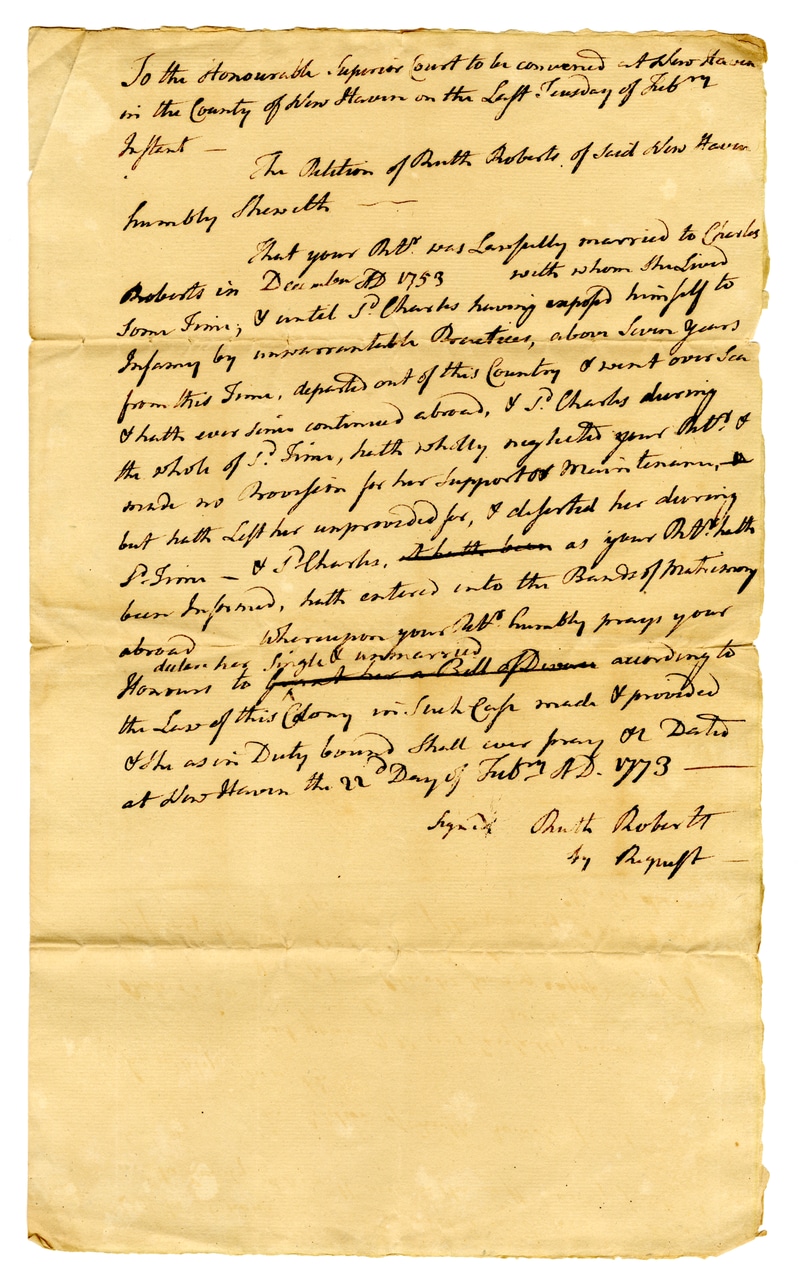 To the Honourable Superior Court to be convened at New Haven
in the County of New Haven on the Last Tuesday of Feb.ry
Instant —
The Petition of Ruth Roberts of said New Haven
humbly Sheweth —
That your Pet.r was Lawfully married to Charles
Roberts in December AD 1753 with whom She Lived
Some Time, & until Sd. Charles having exposed himself to
Infamy by unwarrantable Practices, above Seven Years
from this Time, departed out of this Country & went over Sea
& hath ever since continued abroad, & Sd. Charles during
the whole of Sd. Time, hath wholly neglected your Pet.r &
made no Provision for her Support or Maintenance,
but hath Left her unprovided for, & deserted her during
Sd. Time — & Sd. Charles, & hath been as your Pet.r hath
been Informed, hath entered into the Bands of Matrimony
abroad Whereupon your Pet.r humbly prays your
declare her Single & unmarried
Honours to grant her a Bill of Divorce according to
the Law of this Colony in Such Case made & provided
& She as in Duty bound Shall ever pray &c Dated
at New Haven the 22d Day of Feb.ry AD. 1773 —
Signed Ruth Roberts
by Request —